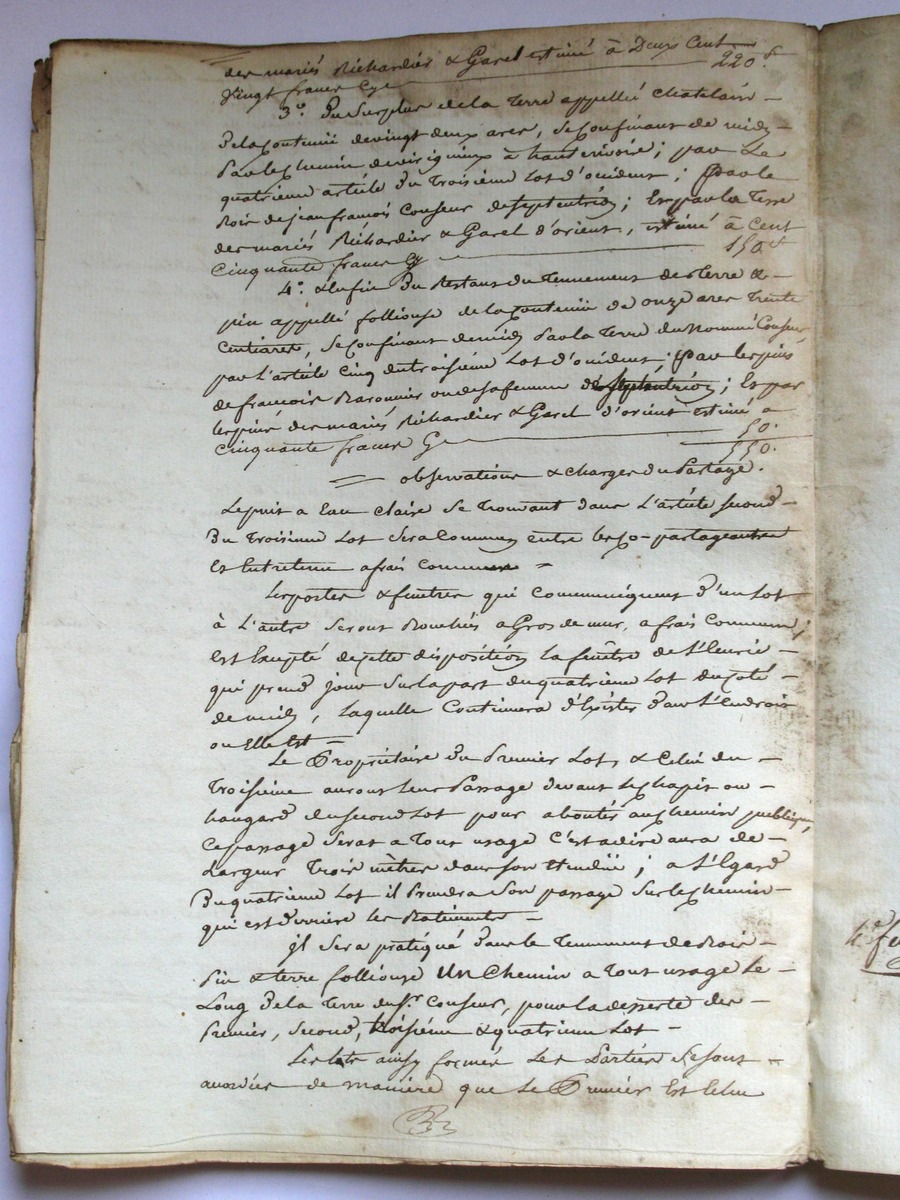 des mariés Richardier & Garel estimé à Deux Cent
vingt francs Cy 220 f.
3.° Du Surplus de la Terre appellée Chatelain
De la Contenüe de vingt deux ares, Se Confinant de midy
Par le Chemin de virigneux à hauterivoire; par Le
quatrieme article Du Troisieme Lot d'occident; Par le
Bois de jean francois Couseur de Septentrion; Et par la Terre
des mariés Richardier & Garel d'orient, estimé à Cent
Cinquante francs Cy 150 f
4.° & Enfin Du Restant du Tennement de Terre &
pin appellé follieuse de la Contenüe de onze ares Trente
Centiares, Se Confinant de midy Par la Terre du Nommé Couseur
par L'article Cinq du troisieme Lot d'occident; Par les pins
de francois ou de sa femme de Septentrion; Et par
les pins des mariés Richardier & Garel d'orient estimé a
Cinquante francs Cy 50.
550.
= observations & charges du Partage.
Le puit a Eau Claire Se Trouvant dans L'article Second
Du Troisieme Lot Sera Commun entre les Co-partageantes
Et Entretenu a frais Communs =
Les portes & fenêtres qui Communiquent D'un Lot
à L'autre Seront Bouchées a Gros de mur, a frais Communs;
Est Excepté de cette disposition la fenêtre de L'Ecurie
qui prend jour Sur la part du quatrieme Lot du Coté
de midy, laquelle Continuera d'Exister Dans L'Endroit
ou Elle Est =
Le Propriétaire Du Premier Lot, & Celui du
Troisieme auront leur Passage devant Le Chapit ou
hangard du Second Lot pour aboutir au Chemin publique,
Ce passage Serat a Tout usage C'est a dire aura de
Largeur Trois mètres dans Son Etendüe; a L'Egard
Du quatrieme Lot il Prendra Son passage Sur le Chemin
qui est Derriere les Batiments =
Il Sera pratiqué Dans le Tennement de Bois
Pin & terre follieuse UN Chemin a Tout usage Le
Long De la Terre du S.r Couseur, pour la desserte des
Premier, Second, troisieme & quatrieme Lot
Les Lots ainsy formés Les Parties Se Sont
accordées de maniere que Le Premier Est Echu